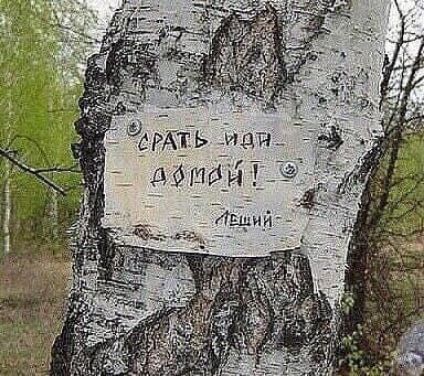 СРАТЬ ИДИ
ДОМОЙ!
ЛЕШИЙ